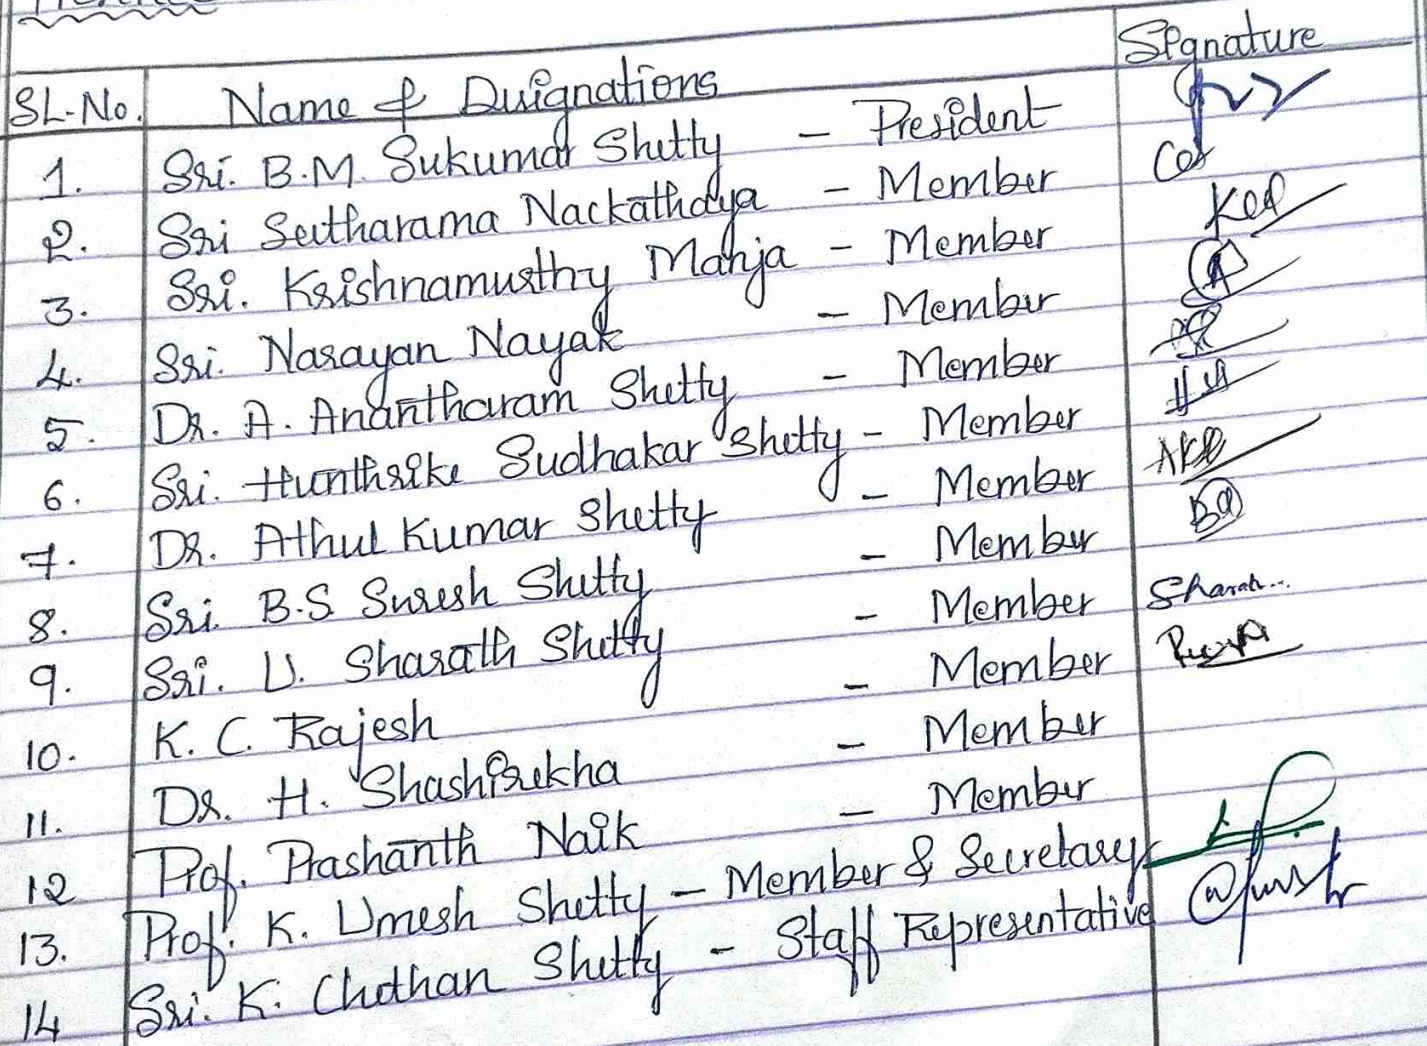 Signature
SL.No. Name & Designations
1. Sri. B.M. Sukumar Shetty - President
2. Sri Seetharama Nackathaya - Member
3. Sri. Krishnamurthy Manja - Member
4. Sri. Narayan Nayak - Member
5. Dr. A. Anantharam Shetty - Member
6. Sri. Hunthrike Sudhakar Shetty - Member
7. Dr. Athul Kumar Shetty - Member
8. Sri. B.S Suresh Shetty - Member
9. Sri. U. Sharath Shetty - Member Sharath...
10. K. C. Rajesh - Member
11. Dr. H. Shashirekha - Member
12 Prof. Prashanth Naik - Member
13. Prof. K. Umesh Shetty - Member & Secretary
14 Sri. K. Chethan Shetty - Staff Representative